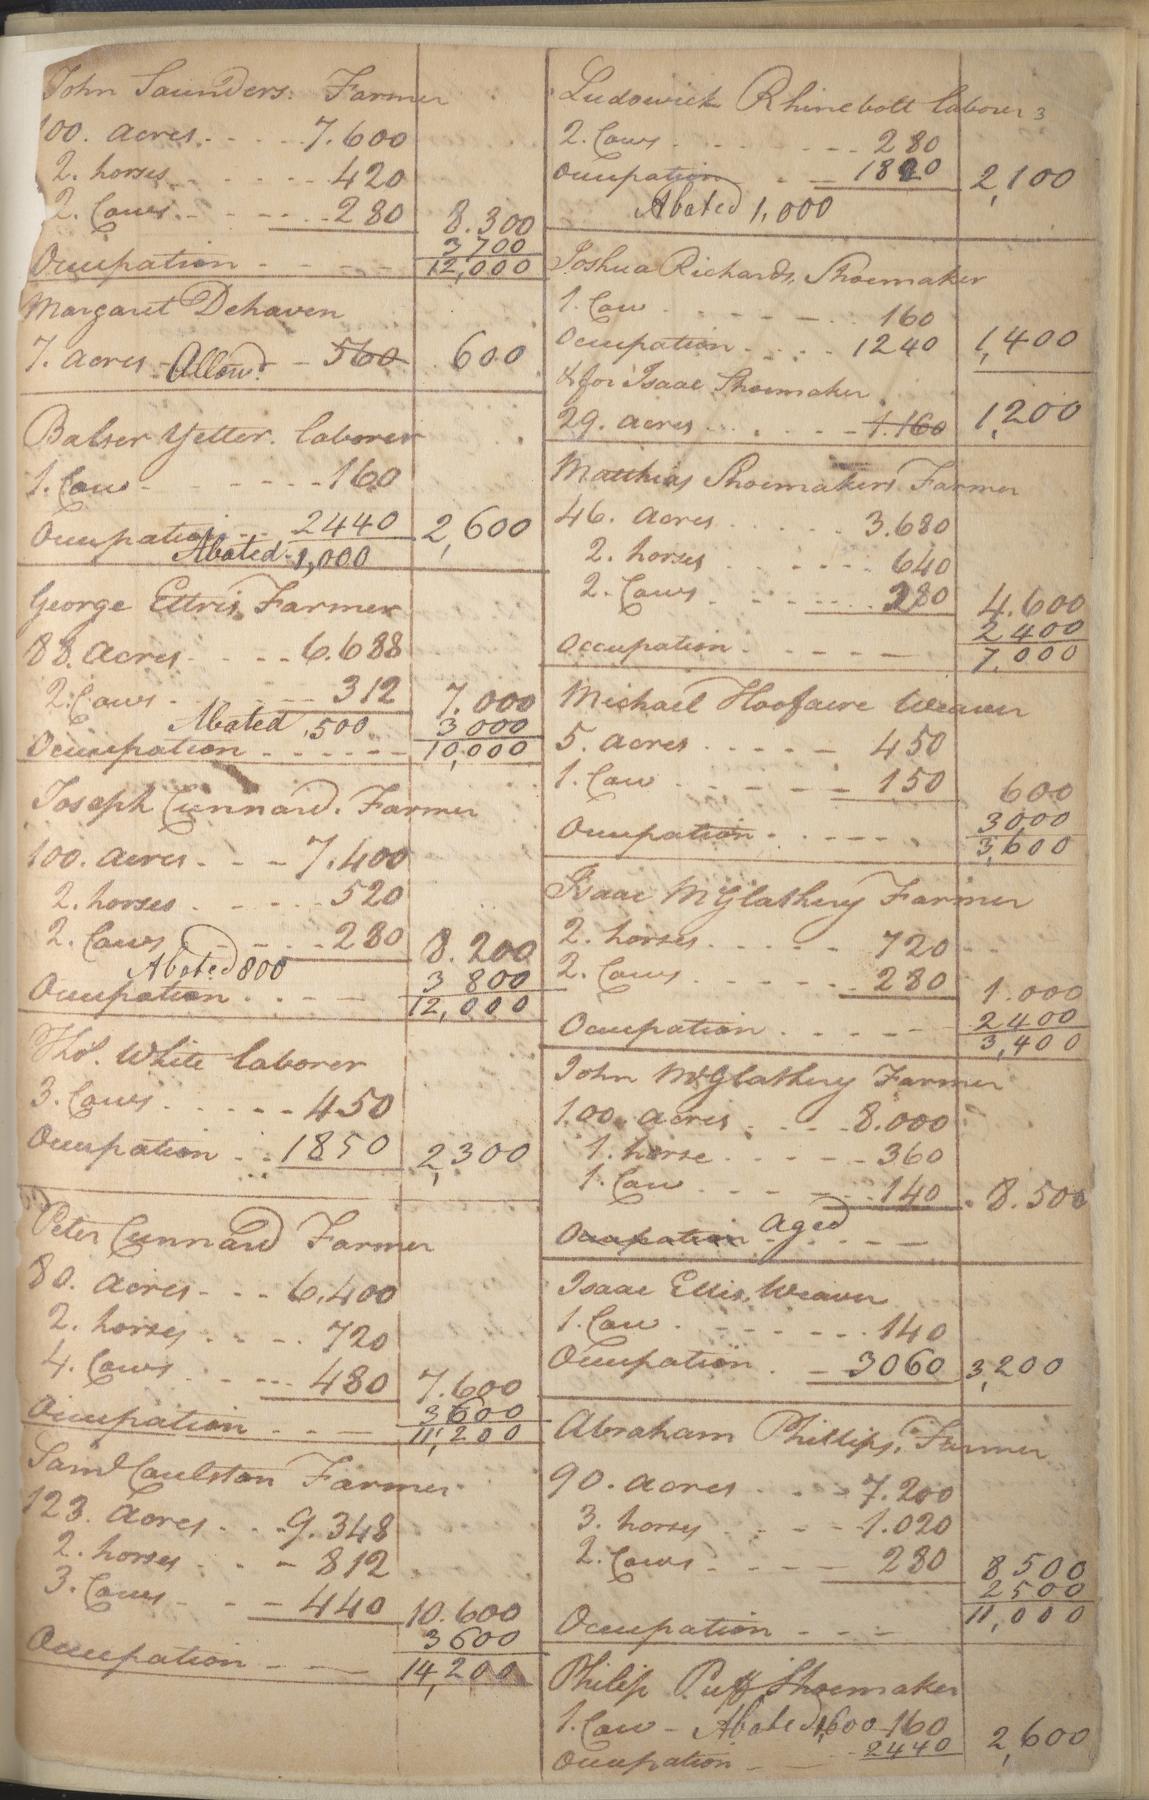 John Saunders. Farmer
100. acres. - - - - 7.600
2. horses. - - - - 420
2. Cows. - - - - 280 8.300
3700
Occupation - - - - 12,000
Margaret Dehaven
7. acres Allowd. - 560 600
Balser Yetter. laborer
1. Cow - - - - 160
Occupation - - 2440 2,600
Abated - 1,000
George Ettris, Farmer
88. acres - - - - 6.688
2. Cows - - - - 312 7.000
Abated ,500. 3000
Occupation - - - - 10,000
Joseph Cunnard. Farmer
100. acres - - - 7.400
2. horses - - - - 520
2. Cows - - - 280 8.200
Abated 800 3 800
Occupation - - - - 12,000
Tho.s White laborer
3. Cows - - - - 450
Occupation - - 1850 2,300
Peter Cunnard Farmer
80. acres - - - 6,400
2. horses - - - - 720
4. Cows - - - - 480 7.600
3600
Occupation - - - 11,200
Saml Caulston Farmer
123. acres - - - 9.348
2. horses - - - 812
3. Cows - - - 440 10.600
3600
Occupation - - - 14,200
Ludowick Rhinebolt laborer 3
2. Cows - - - - 280
Occupation - - 1820 2,100
Abated 1,000
Joshua Richards, Shoemaker
1. Cow - - - - 160
Occupation - - - - 1240 1,400
& for Isaac Shoemaker
29. acres - - - - 1.160 1,200
Matthias Shoemaker Farmer
46. acres - - - - 3.680
2. horses - - - - 640
2. Cows - - - - 280 4.600
2400
Occupation - - - - 7,000
Michael Hoofacre Weaver
5. acres - - - - 450
1. Cow - - - - 150 600
3000
Occupation - - - - 3,600
Isaac McGlathery Farmer
2. horses - - - - 720
2. Cows - - - - 280 1.000
2400
Occupation - - - - 3,400
John McGlathery Farmer
100. acres - - - - 8.000
1. horse - - - - 360
1. Cow - - - - 140 8.500
Occupation aged - - -
Isaac Ellis, Weaver
1. Cow - - - - 140
Occupation - - 3060 3,200
Abraham Phillips, Farmer
90. acres - - - 7.200
3. horses - - - 1.020
2. Cows - - - - 280 8500
2500
Occupation - - - 11,000
Philip Puff, Shoemaker
1. Cow - Abated 1,600 160 2,600
Occupation - - 2440